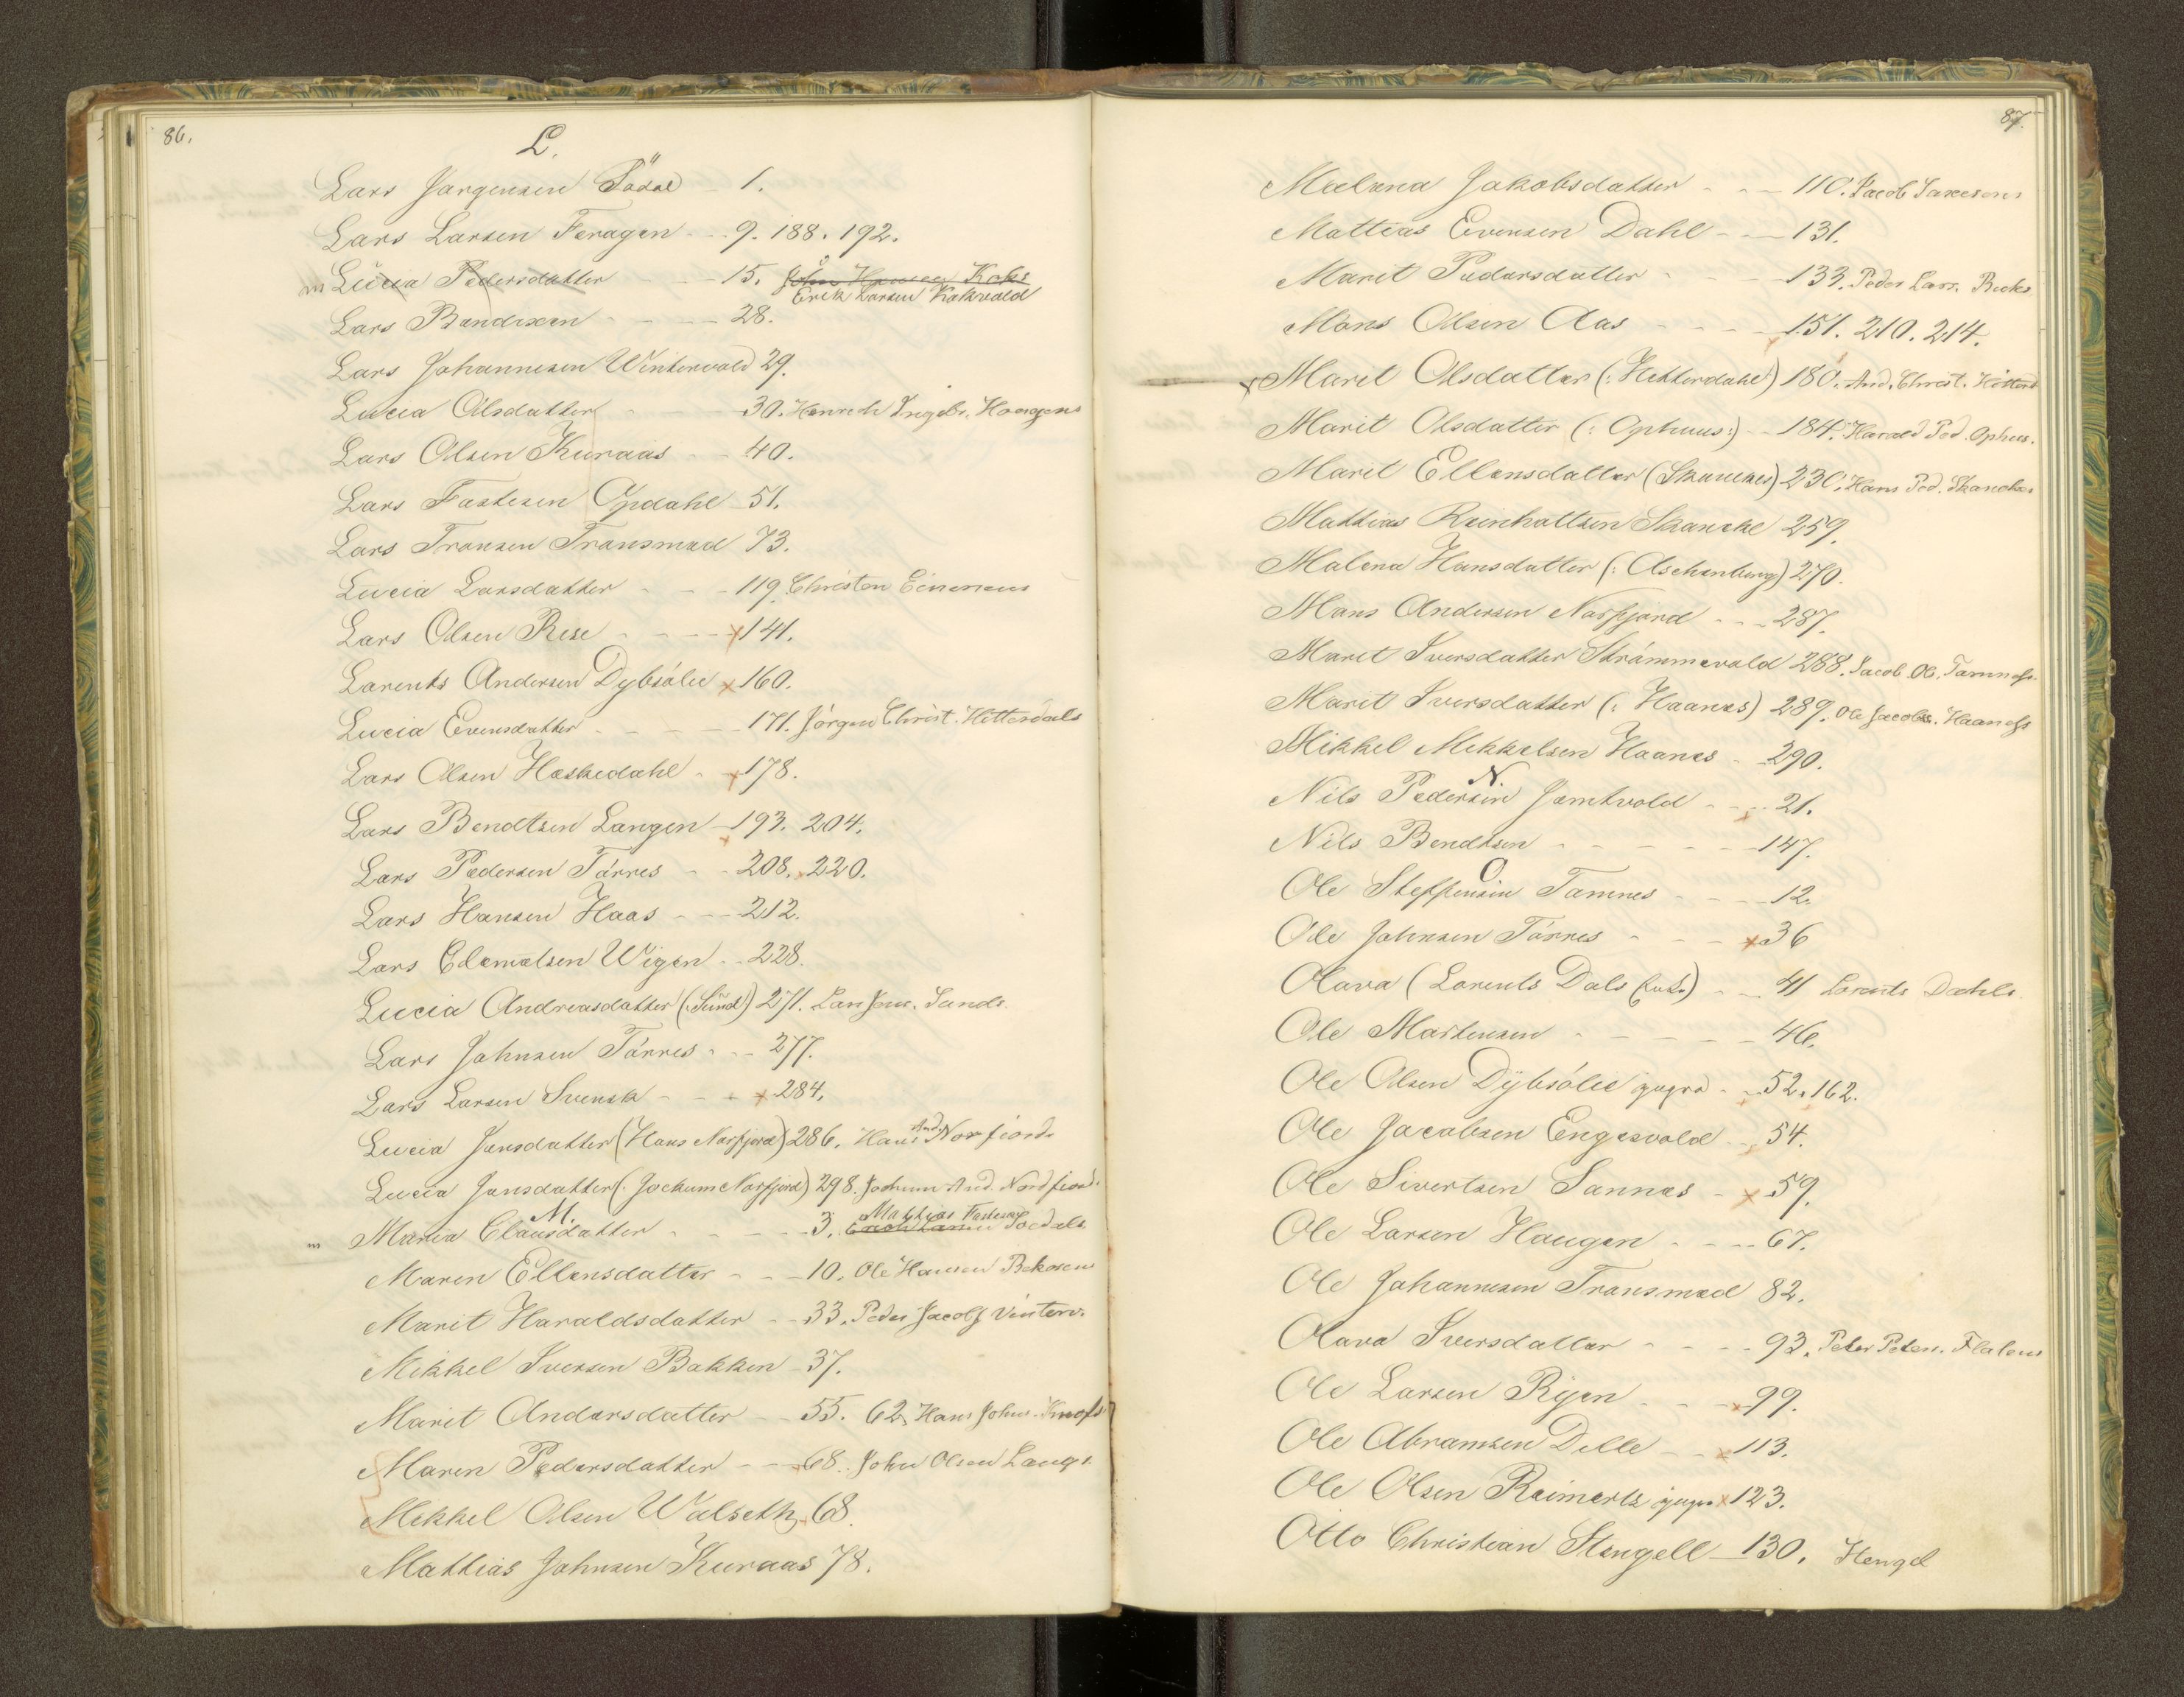 86.
L.
Lars Jørgensen Södal - 1.
Lars Larsen Feragen - - 9. 188. 192.
m Lucia Pedersdatter - - 15. John Hansen Koks
Erick Larsen Kokvold
Lars Bendixen - - - 28.
Lars Johannesen Wintervold 29.
Lucia Olsdatter - - - 30. Henrich Ingebr. Haagens
Lars Olsen Kuraas - - 40.
Lars Fastesen Opdahl - 51.
Lars Tronsen Tronsmed 73.
Lucia Larsdatter - - - 119. Christen Einersens
Lars Olsen Rise - - - x 141.
Larents Andersen Dybsólie x 160.
Lucia Evensdatter - - - 171. Jörgen Christ. Hitterdals
Lars Olsen Haskedahl - x 178.
Lars Bendtsen Langen - 193. 204.
Lars Pedersen Tórres - - 208. 220.
Lars Hansen Haas - - - 212.
Lars Edemalsen Wigen - - 228.
Lucia Andreasdatter (: Sund) 271. Lars Jens. Sunds
Lars Johnsen Tórres - - - 277.
Lars Larsen Svensk - - + x 284.
Lucia Jansdatter (Hans Narfjord) 286. Hans And. Norfiords
Lucia Jansdatter (: Jochum Narfjord) 298. Jochum And. Nordfiord.
M.
m Maria Clausdatter - - - 3. Mathias Fastesen Soedals
Maren Ellensdatter - - - 10. Ole Hansen Bekosens
Marit Haraldsdatter - - 33. Peder Jacobs Vinterv.
Mikkel Iversen Bakken - 37.
Marit Andersdatter - - 55. 62. Hans Johns.
Maren Pedersdatter - - - 68. John Olsen Langs
Mikkel Olsen Walseth - 68.
Mathias Johnsen Kuraas 78.
87.
Malena Jakobsdatter - - - 110. Jacob
Mattias Evensen Dahl - - - 131.
Marit Pedersdatter - - - 133. Peder Lars.
Mons Olsen Aas - - - - 151. 210. 214.
x Marit Olsdatter (: Hitterdahl) 180. And. Christ. Hitterd
Marit Olsdatter (: Ophuus:) - - 184. Harald Ped. Ophus.
Marit Ellensdatter (Skanckes) 230. Hans Ped. Skanckes
Mathias Reinholtsen Skancke 259.
Malena Hansdatter (: Aschenberg) 270.
Mons Andersen Narfjord - - - 287.
Marit Iversdatter Strómmevold 288. Jacob Ol. Tamness.
Marit Iversdatter (: Haanes) 289. Ole Jacobs. Haaness
Mikkel Mikkelsen Haanes - 290.
N.
Nils Pedersen Jamtvold - - - 21.
Nils Bendtsen - - - - - - 147.
O
Ole Steffensen Tamnes - - - - 12.
Ole Johnsen Tórres - - - x 36
Olava (Lorents Dals Enke) - - 41 Lorents Dahls
Ole Martensen - - - - - 46.
Ole Olsen Dybsólie yngre - - 52. 162.
Ole Jacobsen Engesvold - - 54.
Ole Sivertsen Sannes - x 59.
Ole Larsen Haugen - - - - 67.
Ole Johannesen Tronsmed 82.
Olava Iversdatter - - - - 93. Peter Peters. Flatens
Ole Larsen Rigen - - - x 99.
Ole Abramsen Delle - - x 113.
Ole Olsen Reimerts yngre x 123.
Otto Christian Stengell - 130. Hengel